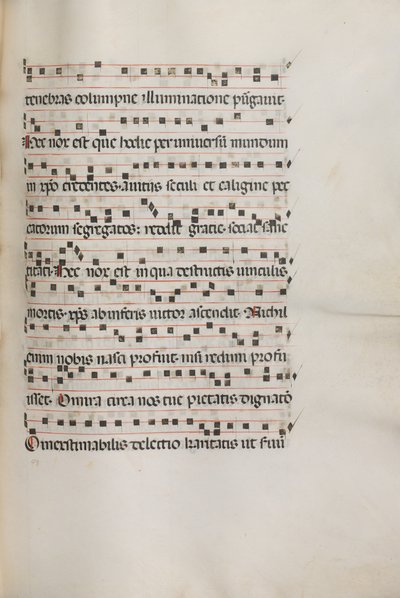 tenebras columpne illuminatione purgauit.
Hec nox est que hodie per uniuersu mundum
in xpo credentes. a uitiis seculi et caligine pec
catorum segregatos: reddit gratie. sociat sanc
titati. Hec nox est in qua destructis uinculis
mortis. xps ab inferis uictor ascendit. Nichil
enim nobis nasci profuit. nisi redimi profu
isset. O mira circa nos tue pietatis dignatio
O inextimabilis delectio karitatis ut seruu